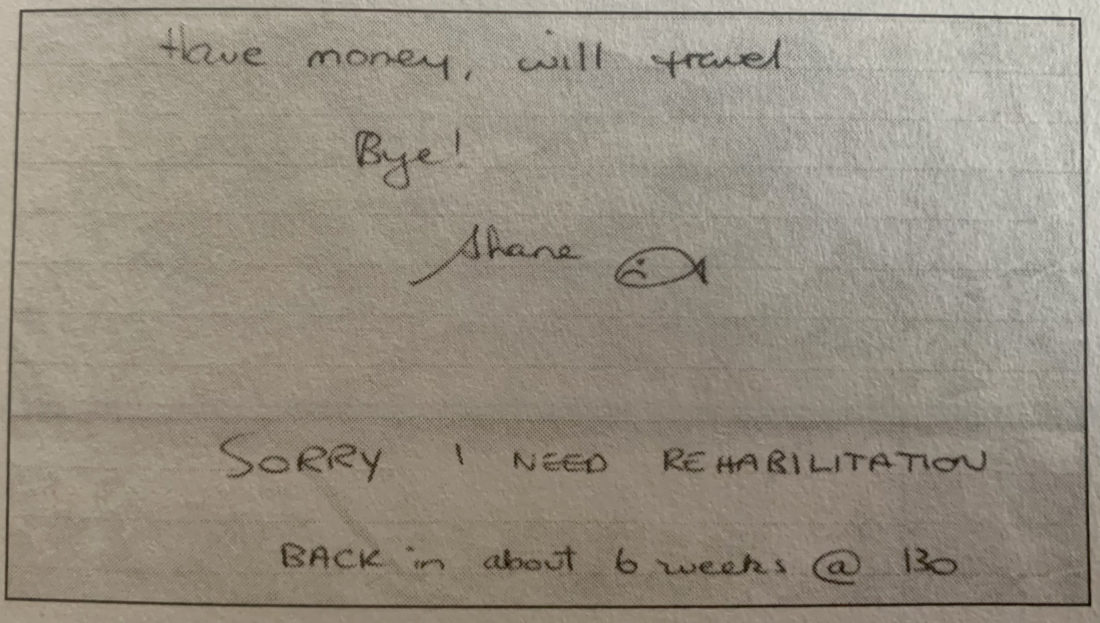 Have money, will travel
Bye!
Shane
SORRY I NEED REHABILITATION
BACK in about 6 weeks @ 130